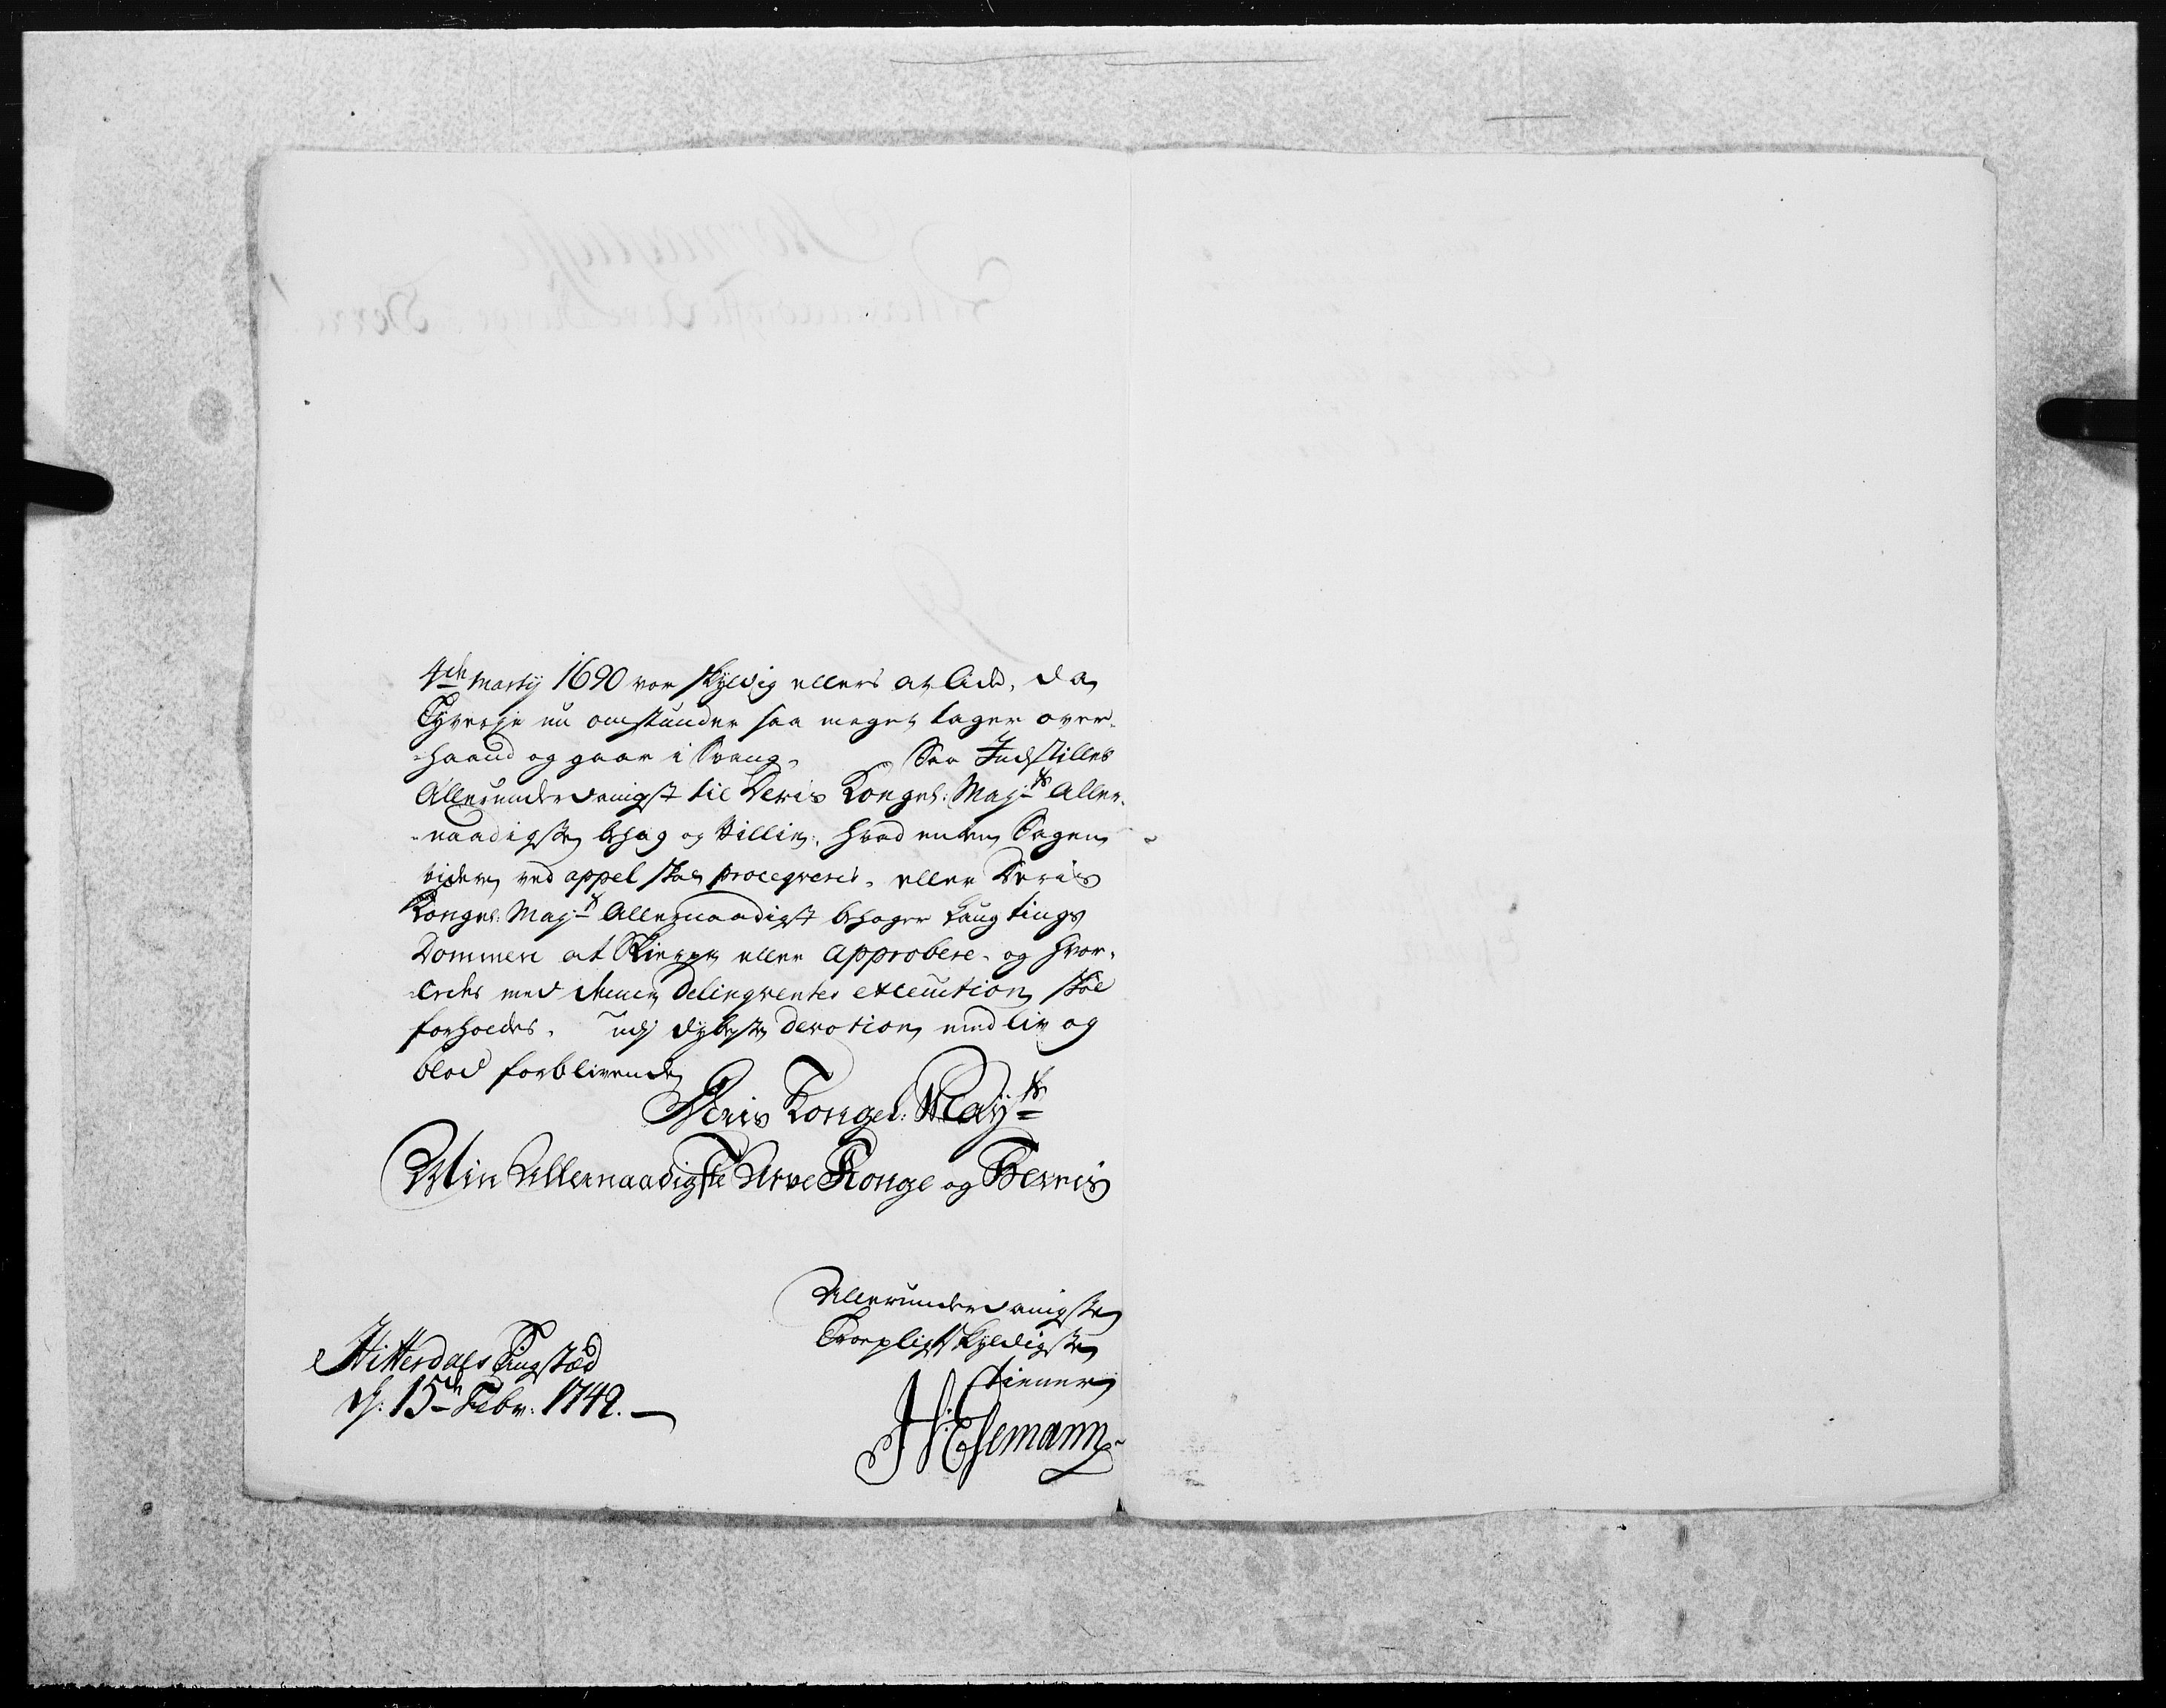 4de Martij 1690 vor skyldig ellers at lide, da
Tyverje nu omstunder saa meget tager over¬
-haand og gaar i Svang. Saa Indstilles
Allerunderdanigst til Deris Kongel: Maj:ts Aller¬
-naadigste behag og Villie, hvad enten Sagen
videre ved appel skal procegveres, eller Deris
Kongel: Maj:t Allernaadigst behager Laugtings
Dommen at skierpe eller approbere, og hvor¬
-ledes med denne Delinqventes execution skal
forholdes. Udj dybeste devotion med liv og
blod forblivende
Deris Kongel: Maij:ts
Min Allernaadigste Arve Konge og Herris
Allerunderdanigste
Troepligtskyldigste
tiener
H: Esemann
Hitterdals Tingstæd
d: 15de Febr: 1742.